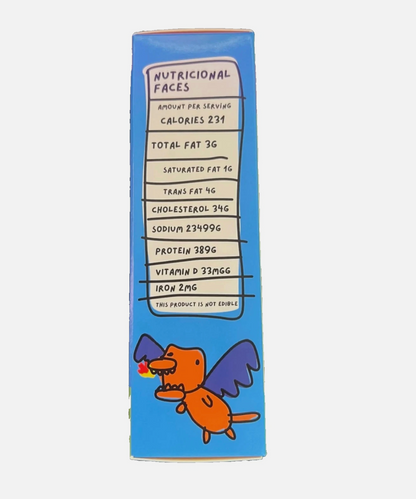 NUTRICIONAL
FACES
AMOUNT PER SERVING
CALORIES 231
TOTAL FAT 3G
SATURATED FAT 1G
TRANS FAT 4G
CHOLESTEROL 34G
SODIUM 23499G
PROTEIN 389G
VITAMIN D 33MGG
IRON 2MG
THIS PRODUCT IS NOT EDIBLE